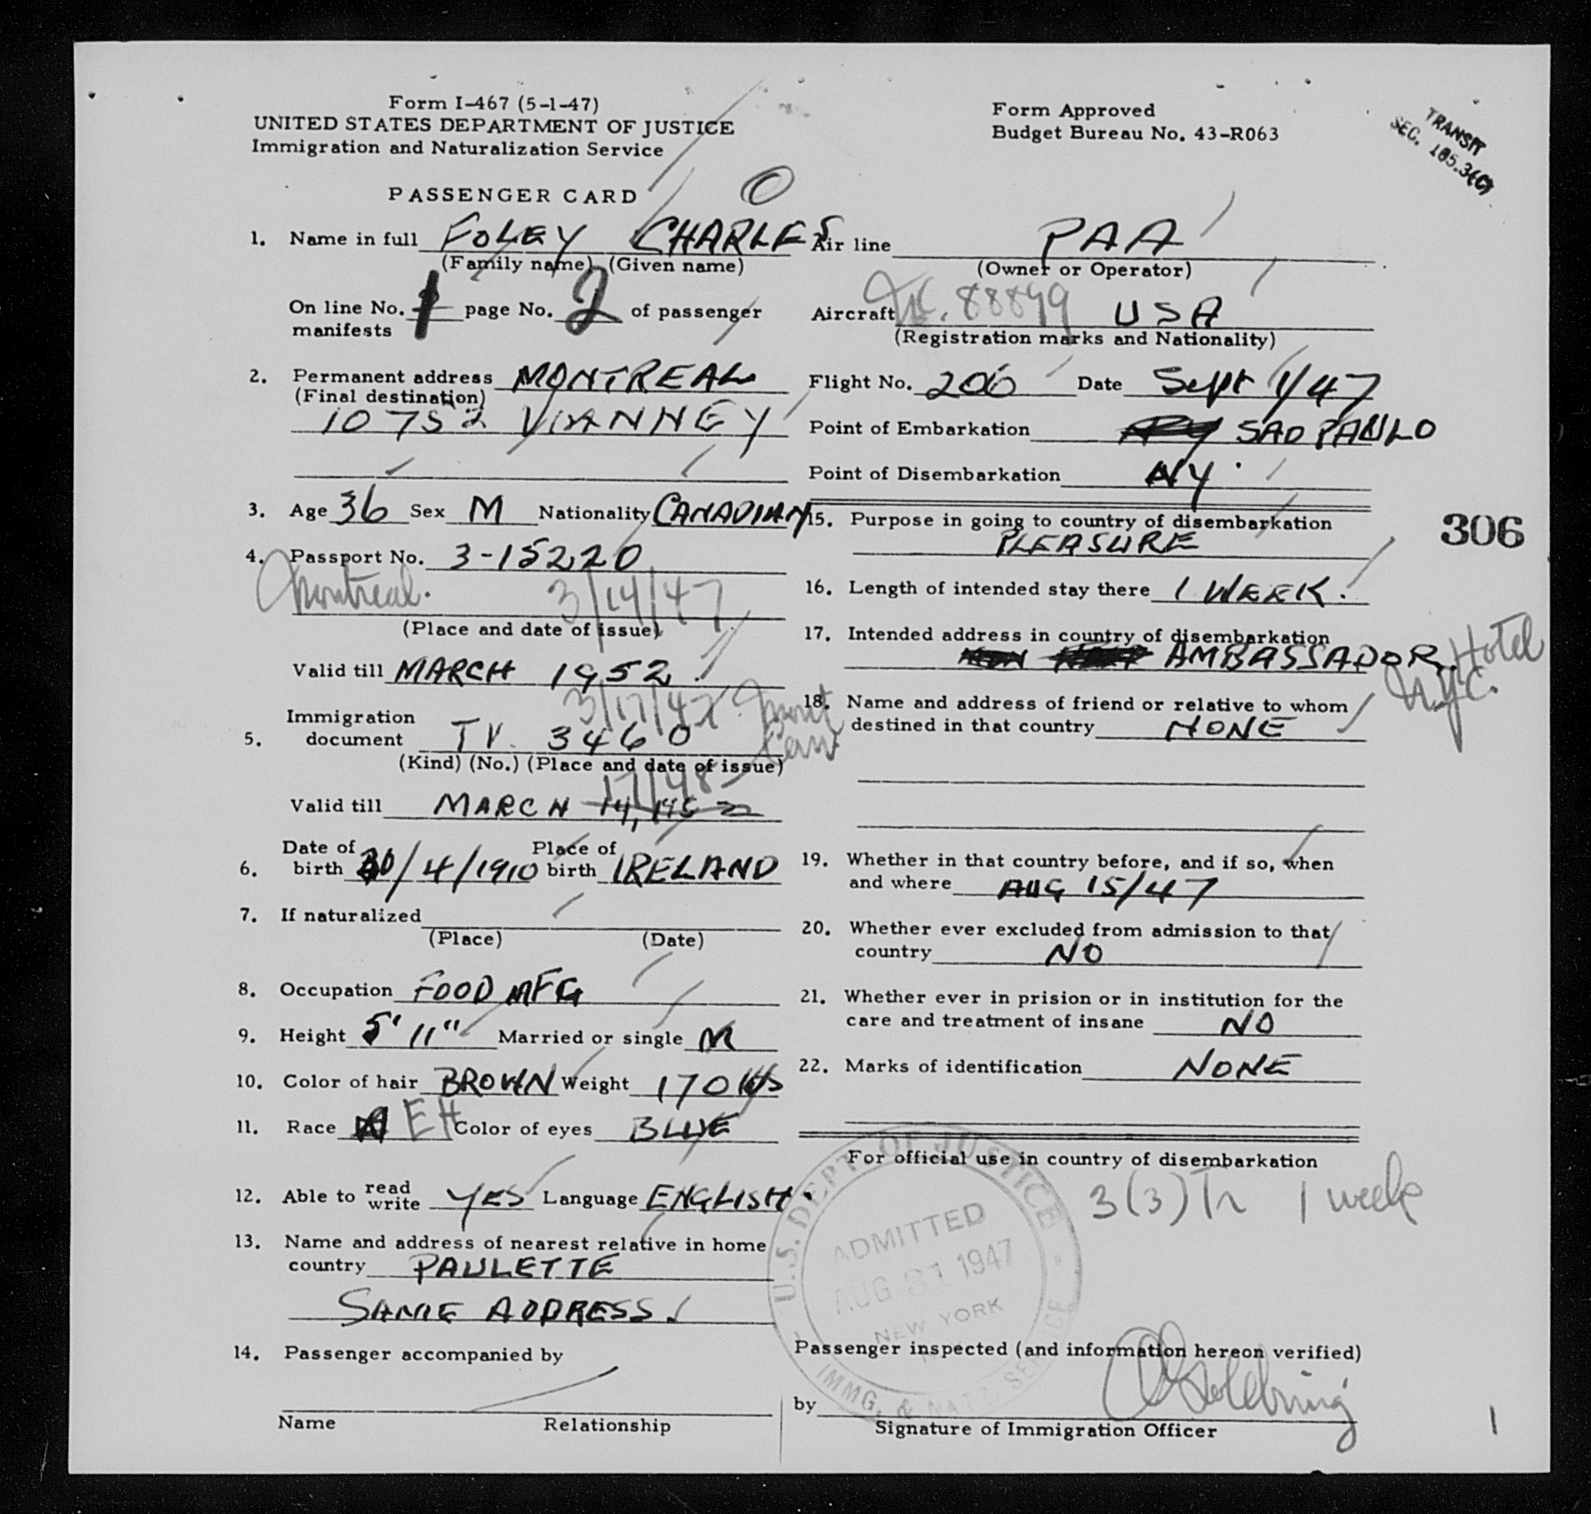 Form I-467 (5-1-47)
UNITED STATES DEPARTMENT OF JUSTICE
Immigration and Naturalization Service
Form Approved
Budget Bureau No. 43-R063
TRANSIT
SEC. 105.3(C)
PASSENGER CARD
O
1. Name in full FOLEY CHARLES
(Family name) (Given name)
On line No. 1 page No. 2 of passenger
manifests
2. Permanent address MONTREAL
(Final destination)
10752 VIANNEY
3. Age 36 Sex M Nationality CANADIAN
4. Passport No. 3-15220
Montreal. 3/14/47
(Place and date of issue)
Valid till MARCH 1952
3/17/47 Mont
5. Immigration
document TV. 3460
(Kind) (No.) (Place and date of issue)
17/48
Valid till MARCH 14, 1952
6. Date of birth 30/4/1910 Place of birth IRELAND
7. If naturalized
(Place) (Date)
8. Occupation FOOD MFG
9. Height 5' 11" Married or single M
10. Color of hair BROWN Weight 170 lbs
11. Race EH Color of eyes BLUE
12. Able to read write YES Language ENGLISH.
13. Name and address of nearest relative in home
country PAULETTE
SAME ADDRESS.
14. Passenger accompanied by
Name Relationship
Air line PAA
(Owner or Operator)
Aircraft NC. 88899 USA
(Registration marks and Nationality)
Flight No. 206 Date Sept 1/47
Point of Embarkation SAO PAULO
Point of Disembarkation NY.
15. Purpose in going to country of disembarkation
PLEASURE
306
16. Length of intended stay there 1 WEEK.
17. Intended address in country of disembarkation
AMBASSADOR. Hotel
N.Y.C.
18. Name and address of friend or relative to whom
destined in that country NONE
19. Whether in that country before, and if so, when
and where AUG 15/47
20. Whether ever excluded from admission to that
country NO
21. Whether ever in prision or in institution for the
care and treatment of insane NO
22. Marks of identification NONE
For official use in country of disembarkation
3(3) Tr 1 week
U.S. DEPT. OF JUSTICE
ADMITTED
AUG 31 1947
NEW YORK
IMMG. & NATZ. SERVICE
Passenger inspected (and information hereon verified)
by
Signature of Immigration Officer
1